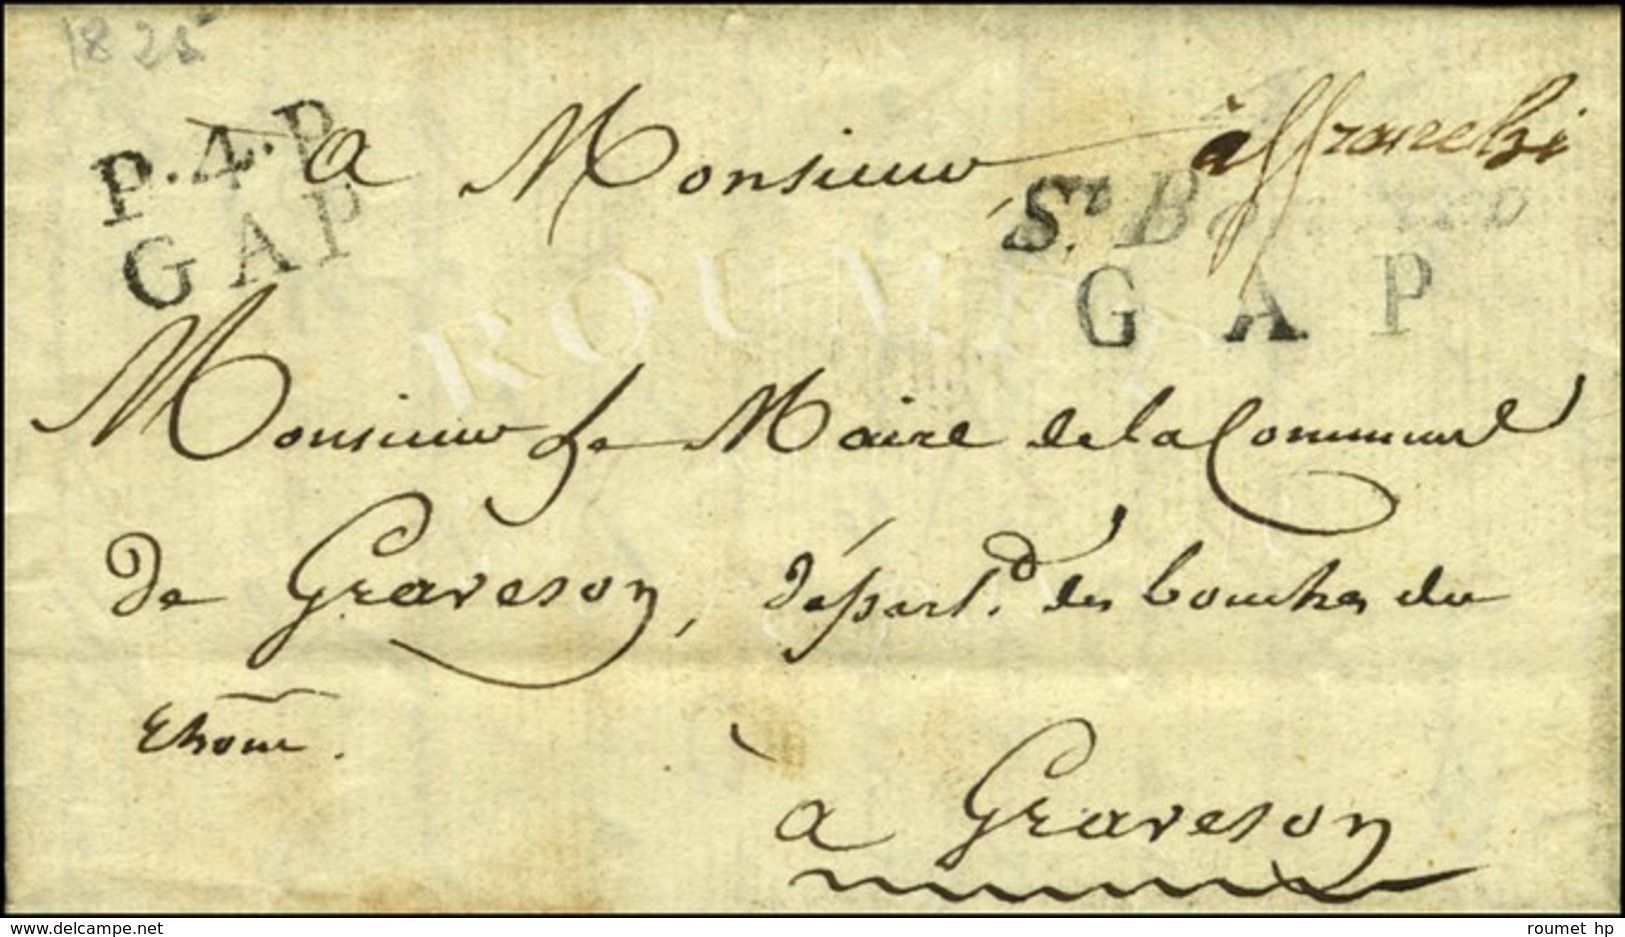 1825
P.4.P
GAP
a Monsieur
affranchi
St. B
GAP
ROUMET
Monsieur Le Maire de la Commune
de Graveson, départ. des bouches du
Rhone.
à Graveson
delcampe.net
roumet hp